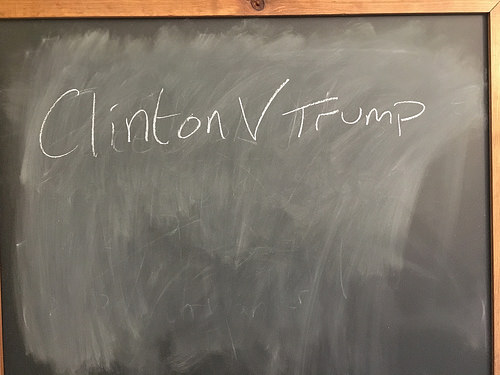 Clinton V Trump